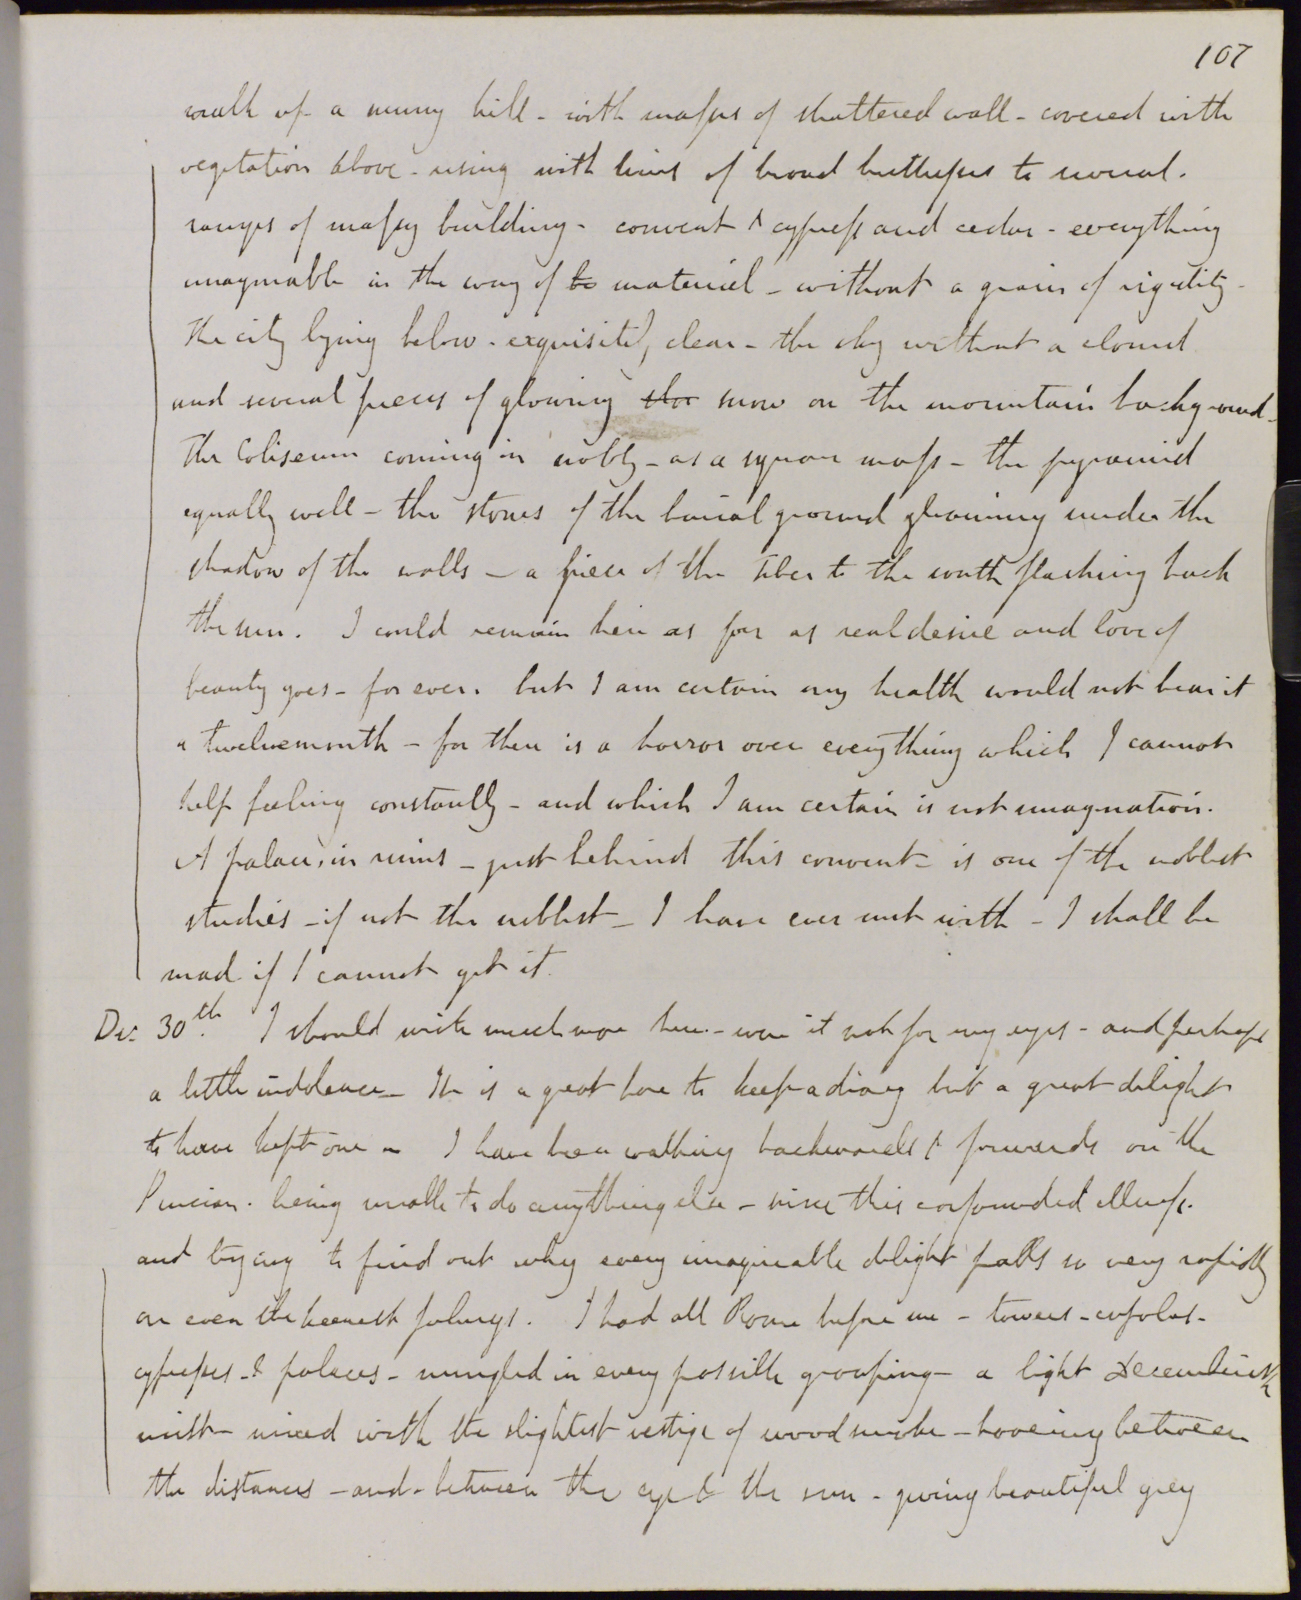 107
walk up a sunny hill - with masses of shattered wall - covered with
vegetation above - rising with lines of broad buttresses to several
ranges of massy building - convent & cypress and cedar - everything
imaginable in the way of to material - without a grain of rigidity -
the city lying below - exquisitely clear - the sky without a cloud
and several pieces of glowing snow on the mountain background -
The Coliseum coming in nobly - as a square mass - the pyramid
equally well - the stones of the burial ground gleaming under the
shadow of the walls - a piece of the Tiber to the south flashing back
the sun. I could remain here as far as real desire and love of
beauty goes - for ever. but I am certain my health would not bear it
a twelvemonth - for there is a horror over everything which I cannot
help feeling constantly - and which I am certain is not imagination.
A palace, in ruins - just behind this convent - is one of the noblest
studies - if not the noblest - I have ever met with - I shall be
mad if I cannot get it.
Dec. 30th. I should write much more here - were it not for my eyes - and perhaps
a little indolence - It is a great bore to keep a diary but a great delight
to have kept one - I have been walking backwards & forwards on the
Pincian - being unable to do anything else - since this confounded illness.
and trying to find out why every imaginable delight palls so very rapidly
on even the keenest feelings. I had all Rome before me - towers - cupolas -
cypresses - & palaces - mingled in every possible grouping - a light Decemberish
mist - mixed with the slightest vestige of wood smoke - hovering between
the distances - and - between the eye & the sun - giving beautiful grey